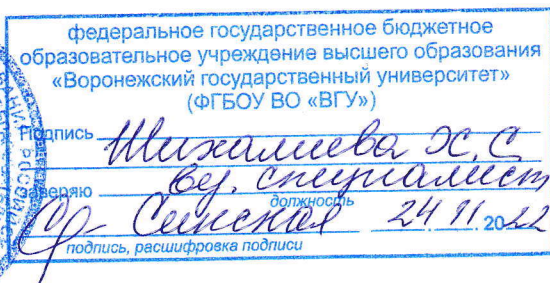 федеральное государственное бюджетное
образовательное учреждение высшего образования
«Воронежский государственный университет»
(ФГБОУ ВО «ВГУ»)
Подпись Шихалиева Х.С
заверяю вед. специалист
должность
Синская 24 11 2022
подпись, расшифровка подписи